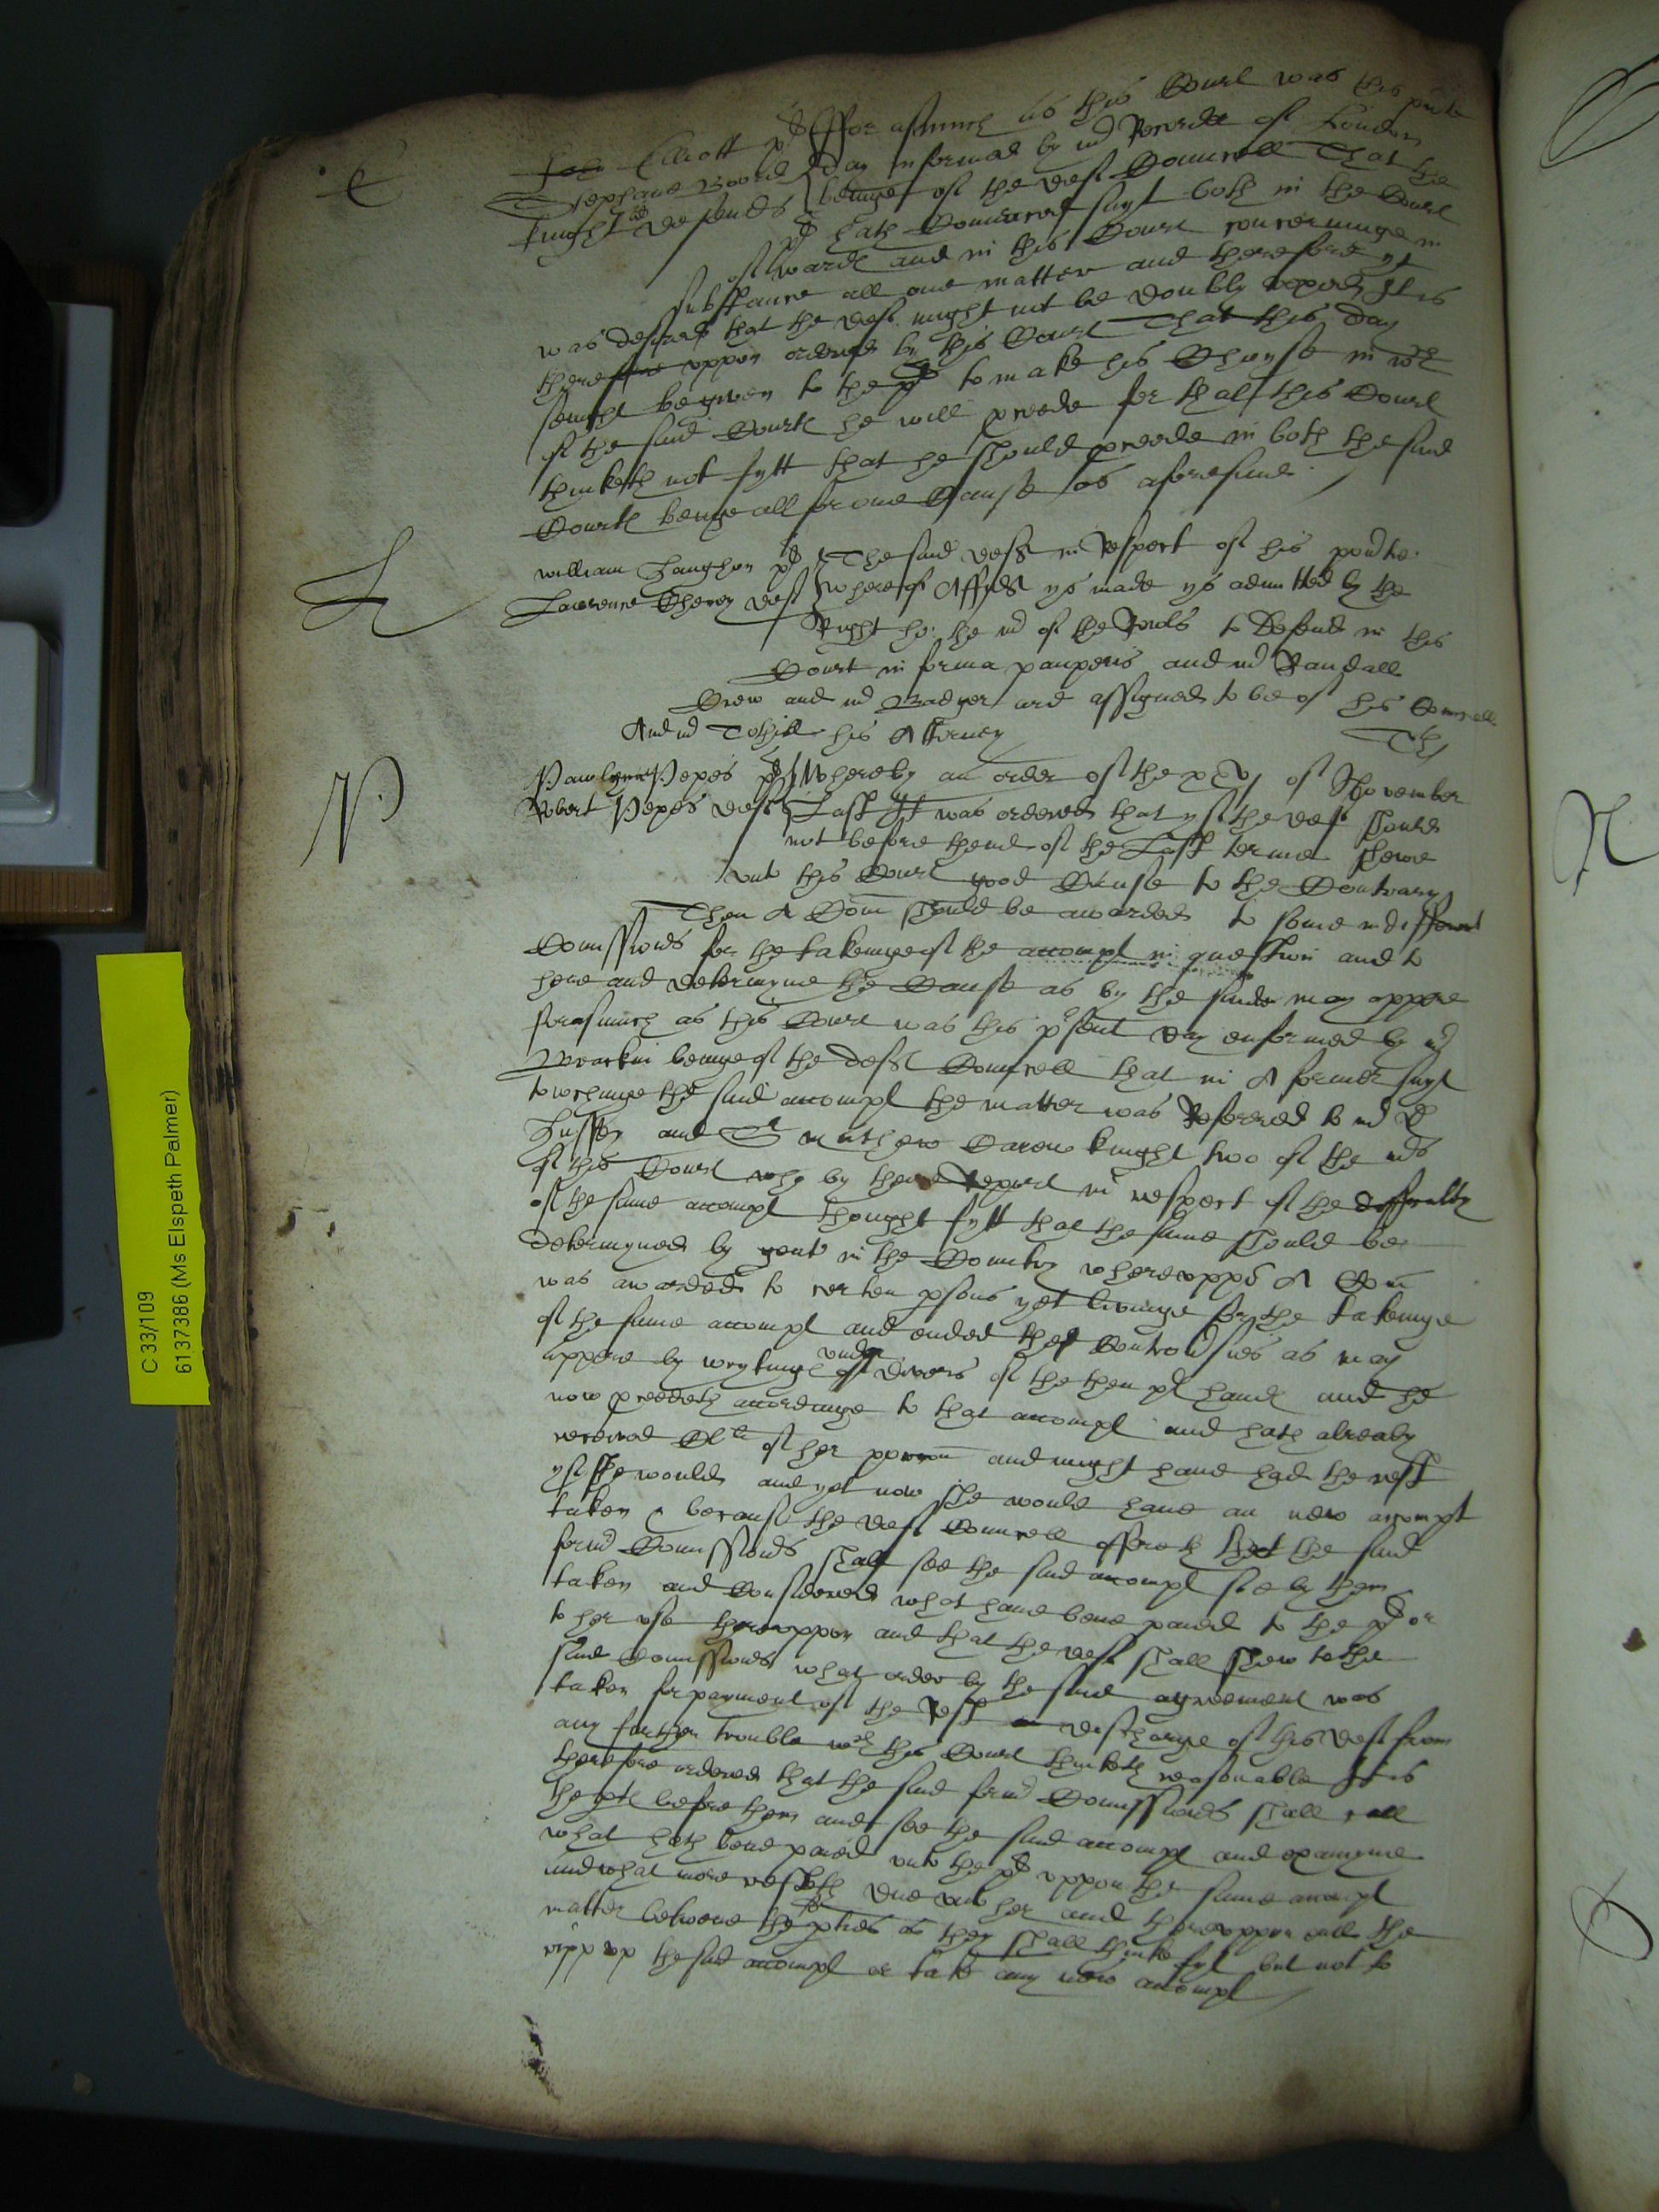 E
Elliott pl Fforasmuch as this Court was this pnte
Stephane Boord day informed by mr Recorder of London
knight defends beinge of the def Councell That the
pl hath Comenced suyt both in the Court
of Wards and in this Court concerninge in
substance all one matter and therefore yt
was desired that the def might not be doubly vexed It is
thereuppon ordered by this Court That this day
sevnight be given to the pl to make his Choyse in wch
of the said Courts he will procede for that this Court
thinketh not fytt that he should procede in both the said
Courts beinge all for one Cause as aforesaid
L
William Langhon pl The said deft in Respect of his povtie
Lawrence Cheney def whereof Affidt ys made ys admitted by the
Right ho: the mr of the Rowls to Defend in this
Court in forma pauperis and mr Randall
Crew and mr Badger are assigned to be of his Councell
And mr Tothill his Attorney
Th
P
Pawlyn Pepes pl Whereby an order of the xxv of November
Robert Pepes def Last yt was ordered that yf the def should
not before thend of the Last terme shewe
unto this Court good Cause to the Contrary
Then A Com should be awarded to some indifferent
Comissionrs for the takinge of the accompt in question and to
heare and determyne the Cause as by the said may appere
forasmuch as this Court was this psent day enformed by mr
beinge of the deft Councell that in A former suyt
towchinge the said accompt the matter was Referred to mr D
Hussey and Sr Mathew Carew knight two of the mrs
of this Court who by there Report in respect of the difficultie
of the same accompt thought fytt that the same should be
determyned by gent in the Countrey whereuppon A Com
was awarded to certen psons yet livinge for the takinge
of the same accompt and ended the Controvsies as may
appere by wrytinge under divers of the then pl hand and he
now procedeth accordinge to that accompt and hath already
receved of her porcon and might have had the rest
yf she would and yet now she would have an new accompt
taken because the def Councell offreth that the said
formr Comissionrs shall see the said accompt soe by them
taken and Considered what have bene paied to the pl or
to her use thereuppon and that the deft shall shew to the
said Comissionrs what order by the said agreement was
taken for payment of the Rest discharge of this def from
any further trouble wch this Court thinketh reasonable It is
therefore ordered that the said formr Comissionrs shall call
the pties before them and see the said accompt and examyne
what hath bene paied unto the pl uppon the same accompt
and what more resteth due unto her and thereuppon end the
matter betwene the pties as they shall thinke fyt but not to
ripp up the said accompt or take any new accompt
C 33/109
6137386 (Ms Elspeth Palmer)